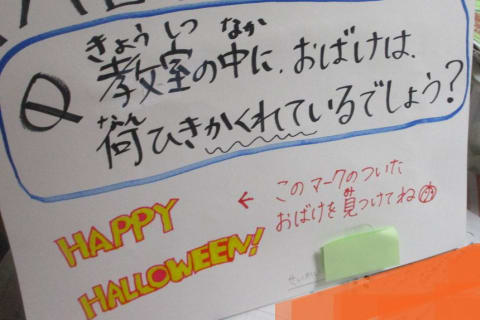 きょう しつ なか
Q 教室の中に、おばけは、
なん
何ひきかくれているでしょう?
← このマークのついた
み
おばけを見つけてね
HAPPY
HALLOWEEN!